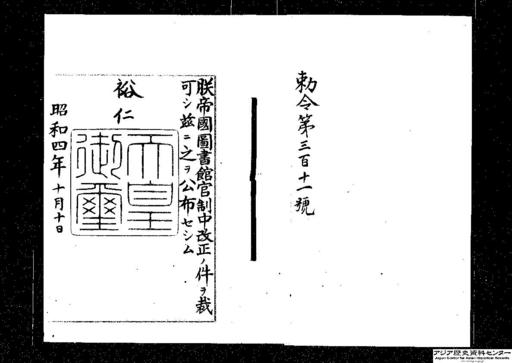 勅令第三百十一號
朕帝國圖書館官制中改正ノ件ヲ裁
可シ茲ニ之ヲ公布セシム
裕仁
天皇
御璽
昭和四年十月十日
アジア歴史資料センター
Japan Center for Asian Historical Records